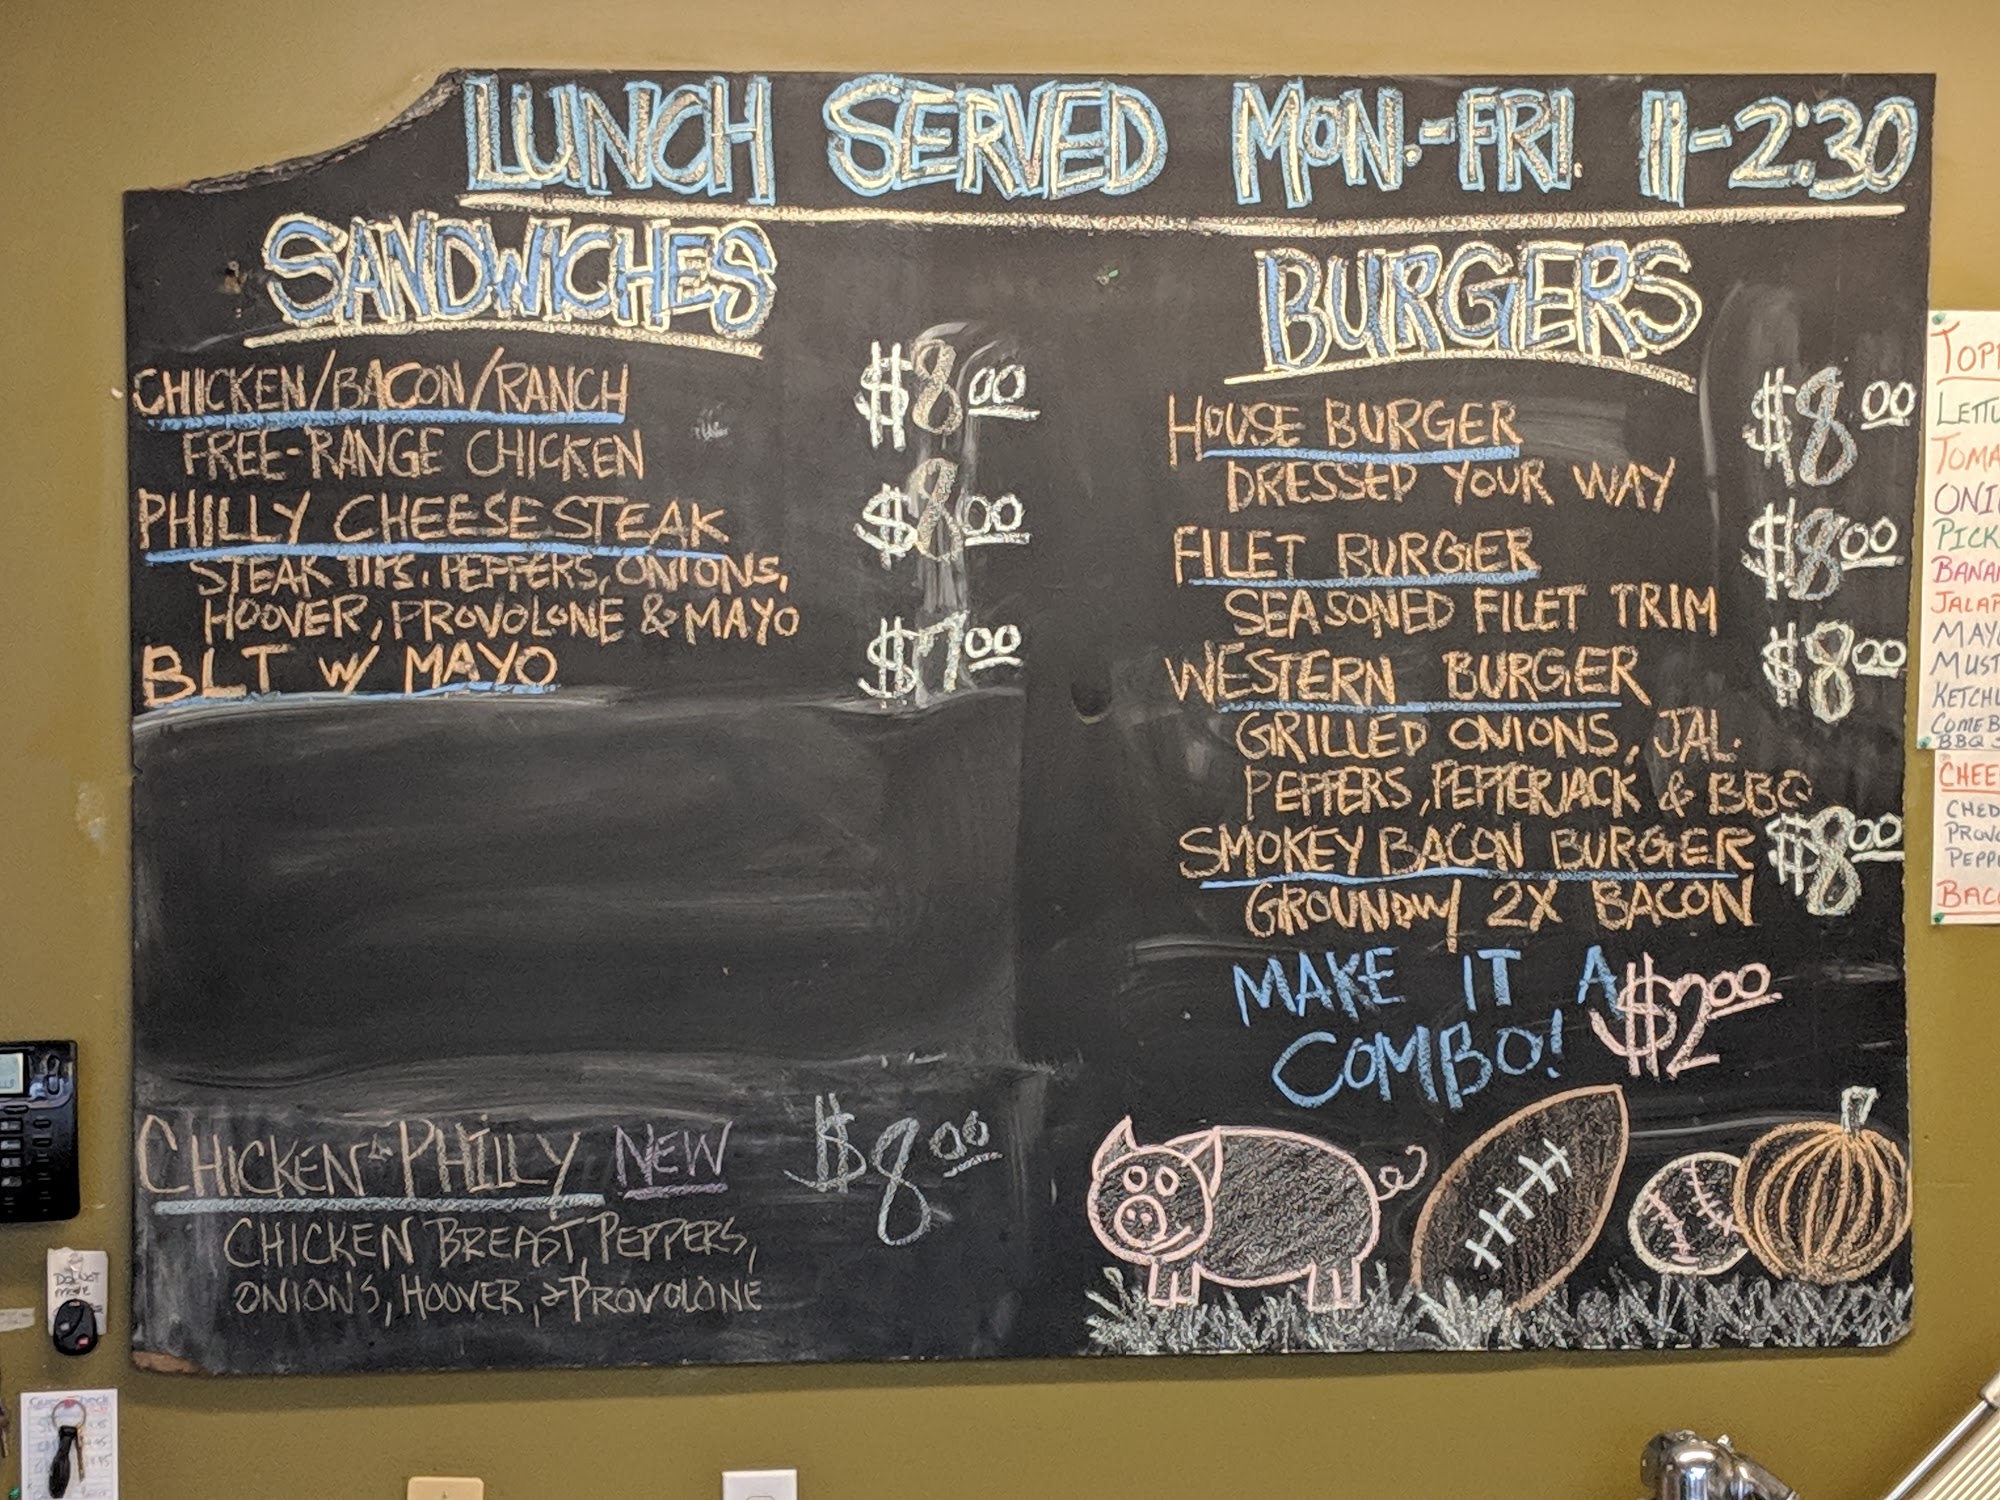 LUNCH SERVED MON.-FRI. 11-2:30
SANDWICHES
CHICKEN/BACON/RANCH $8.00
FREE-RANGE CHICKEN
PHILLY CHEESESTEAK $8.00
STEAK TIPS, PEPPERS, ONIONS,
HOOVER, PROVOLONE & MAYO
BLT W/ MAYO $7.00
CHICKEN PHILLY NEW $8.00
CHICKEN BREAST, PEPPERS,
ONION'S, HOOVER, & PROVOLONE
BURGERS
HOUSE BURGER $8.00
DRESSED YOUR WAY
FILET BURGER $8.00
SEASONED FILET TRIM
WESTERN BURGER $8.00
GRILLED ONIONS, JAL.
PEPPERS, PEPPERJACK & BBQ
SMOKEY BACON BURGER $8.00
GROUND W/ 2X BACON
MAKE IT A $2.00
COMBO!
TOPP
LETTU
TOMA
ONIO
PICK
BANAN
JALAP
MAYO
MUST
KETCHU
COMEB
BBQ S
CHEE
CHED
PROVO
PEPPE
BACO
DO NOT
MOVE